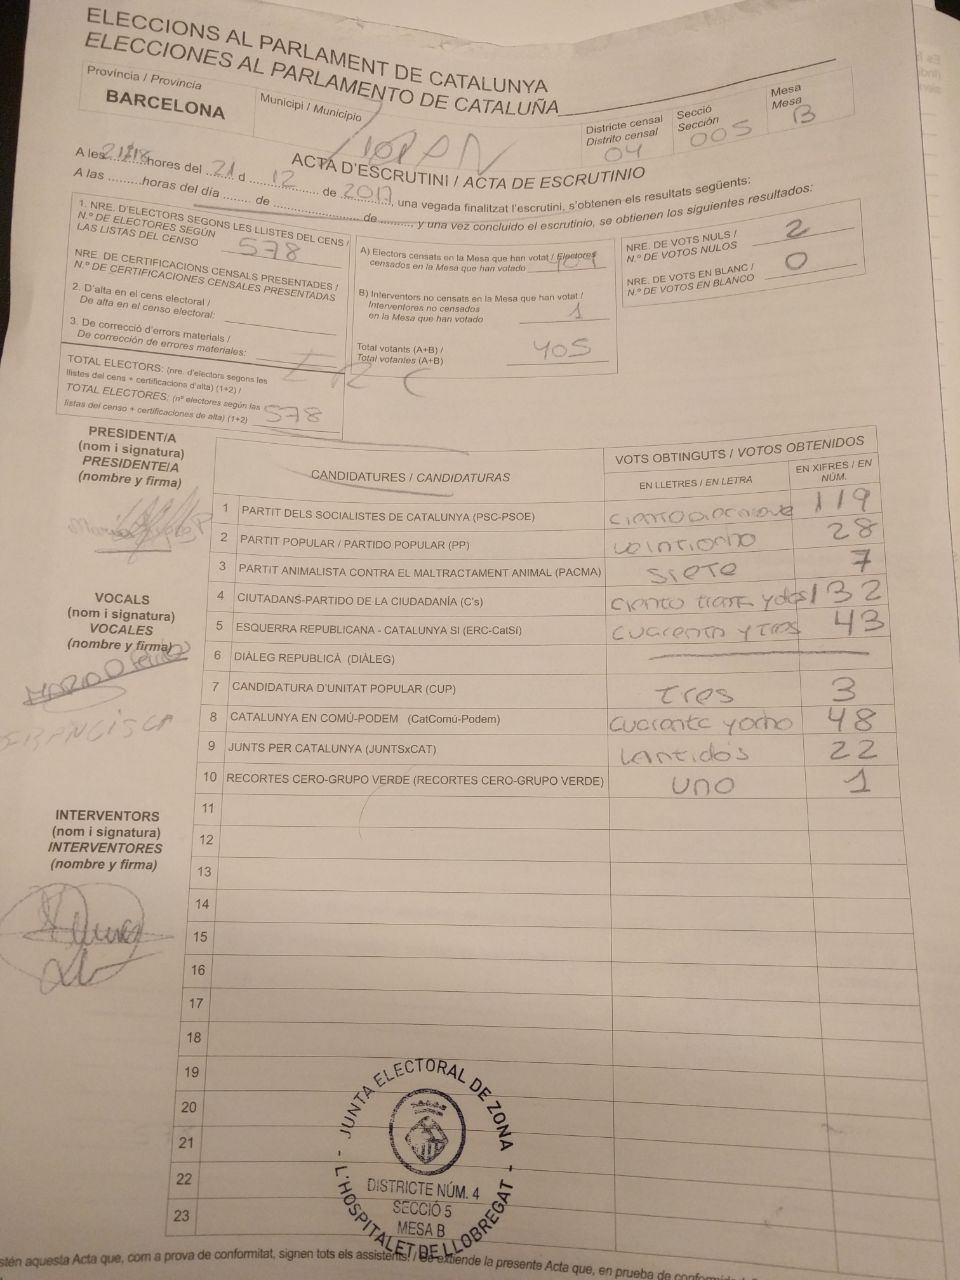 ELECCIONS AL PARLAMENT DE CATALUNYA
ELECCIONES AL PARLAMENTO DE CATALUÑA
Província / Provincia
BARCELONA
Municipi / Municipio
Districte censal
Distrito censal
04
Secció
Sección
005
Mesa
Mesa
B
ACTA D'ESCRUTINI / ACTA DE ESCRUTINIO
A les 21:18 hores del 21 d 12 de 2017, una vegada finalitzat l'escrutini, s'obtenen els resultats següents:
A las ......... horas del día ........ de ........................ de ........ y una vez concluido el escrutinio, se obtienen los siguientes resultados:
1. NRE. D'ELECTORS SEGONS LES LLISTES DEL CENS /
N.º DE ELECTORES SEGÚN
LAS LISTAS DEL CENSO 578
NRE. DE CERTIFICACIONS CENSALS PRESENTADES /
N.º DE CERTIFICACIONES CENSALES PRESENTADAS
2. D'alta en el cens electoral /
De alta en el censo electoral:
3. De correcció d'errors materials /
De corrección de errores materiales:
TOTAL ELECTORS: (nre. d'electors segons les
llistes del cens + certificacions d'alta) (1+2) /
TOTAL ELECTORES: (nº electores según las
listas del censo + certificaciones de alta) (1+2) 578
A) Electors censats en la Mesa que han votat / Electores
censados en la Mesa que han votado 404
B) Interventors no censats en la Mesa que han votat /
Interventores no censados
en la Mesa que han votado 1
Total votants (A+B) /
Total votantes (A+B) 405
ERC
NRE. DE VOTS NULS /
N.º DE VOTOS NULOS 2
NRE. DE VOTS EN BLANC /
N.º DE VOTOS EN BLANCO 0
PRESIDENT/A
(nom i signatura)
PRESIDENTE/A
(nombre y firma)
VOCALS
(nom i signatura)
VOCALES
(nombre y firma)
FRANCISCA
INTERVENTORS
(nom i signatura)
INTERVENTORES
(nombre y firma)
CANDIDATURES / CANDIDATURAS
VOTS OBTINGUTS / VOTOS OBTENIDOS
EN LLETRES / EN LETRA
EN XIFRES / EN NÚM.
1 PARTIT DELS SOCIALISTES DE CATALUNYA (PSC-PSOE) ciento diecinueve 119
2 PARTIT POPULAR / PARTIDO POPULAR (PP) veintiocho 28
3 PARTIT ANIMALISTA CONTRA EL MALTRACTAMENT ANIMAL (PACMA) siete 7
4 CIUTADANS-PARTIDO DE LA CIUDADANÍA (C's) ciento treinta y dos 132
5 ESQUERRA REPUBLICANA - CATALUNYA SI (ERC-CatSí) cuarenta y tres 43
6 DIÀLEG REPUBLICÀ (DIÀLEG)
7 CANDIDATURA D'UNITAT POPULAR (CUP) tres 3
8 CATALUNYA EN COMÚ-PODEM (CatComú-Podem) cuarenta y ocho 48
9 JUNTS PER CATALUNYA (JUNTSxCAT) 22
10 RECORTES CERO-GRUPO VERDE (RECORTES CERO-GRUPO VERDE) uno 1
11
12
13
14
15
16
17
18
19
20
21
22
23
JUNTA ELECTORAL DE ZONA
DISTRICTE NÚM. 4
SECCIÓ 5
MESA B
L'HOSPITALET DE LLOBREGAT
aquesta Acta que, com a prova de conformitat, signen tots els assistents. / Se extiende la presente Acta que, en prueba de